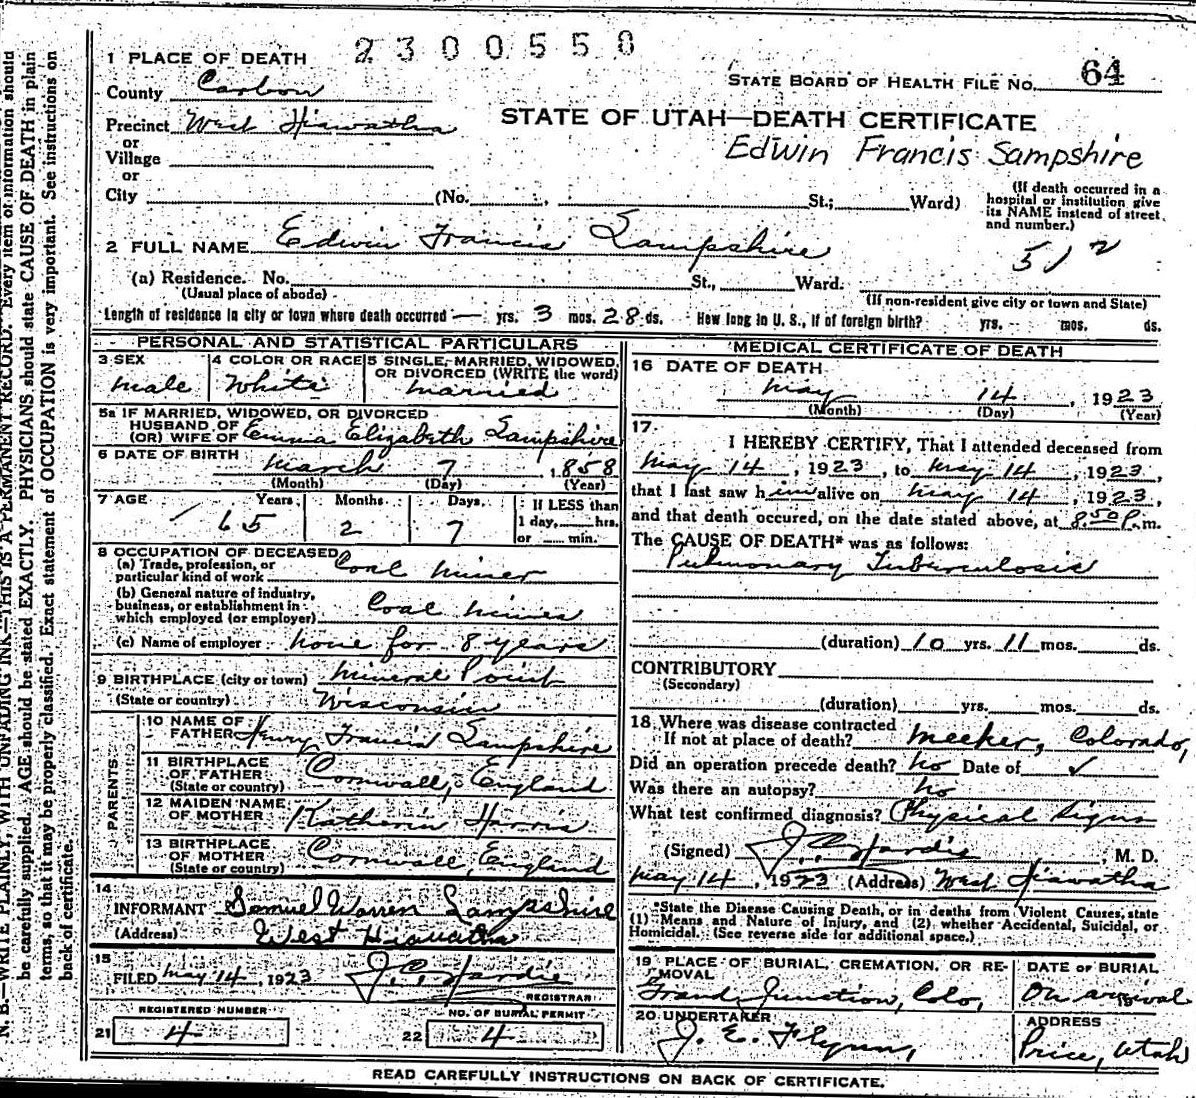 2300558
1 PLACE OF DEATH
STATE BOARD OF HEALTH FILE NO. 64
County Carbon
STATE OF UTAH—DEATH CERTIFICATE
Precinct West Hiawatha
Edwin Francis Sampshire
or
Village
or
City (No. , St.; Ward)
(If death occurred in a hospital or institution give its NAME instead of street and number.)
2 FULL NAME Edwin Francis Sampshire
51 2
(a) Residence. No. St., Ward.
(Usual place of abode)
(If non-resident give city or town and State)
Length of residence in city or town where death occurred — yrs. 3 mos. 28 ds. How long in U. S., if of foreign birth? yrs. mos. ds.
PERSONAL AND STATISTICAL PARTICULARS
3 SEX
male
4 COLOR OR RACE
White
5 SINGLE, MARRIED, WIDOWED, OR DIVORCED (WRITE the word)
married
5a IF MARRIED, WIDOWED, OR DIVORCED
HUSBAND OF
(OR) WIFE OF Emma Elizabeth Sampshire
6 DATE OF BIRTH
March 7 1858
(Month) (Day) (Year)
7 AGE Years Months Days If LESS than
65 2 7 1 day, hrs.
or min.
8 OCCUPATION OF DECEASED
(a) Trade, profession, or
particular kind of work Coal miner
(b) General nature of industry,
business, or establishment in
which employed (or employer) Coal mines
(c) Name of employer none for 8 years
9 BIRTHPLACE (city or town) Mineral Point
(State or country) Wisconsin
PARENTS
10 NAME OF
FATHER Henry Francis Sampshire
11 BIRTHPLACE
OF FATHER Cornwall, England
(State or country)
12 MAIDEN NAME
OF MOTHER Katherin Harris
13 BIRTHPLACE
OF MOTHER Cornwall, England
(State or country)
14
INFORMANT Samuel Warren Sampshire
(Address) West Hiawatha
15
FILED May 14, 1923 J. C. Hardie
REGISTRAR
REGISTERED NUMBER
21 4
NO. OF BURIAL PERMIT
22 4
MEDICAL CERTIFICATE OF DEATH
16 DATE OF DEATH
May 14, 1923
(Month) (Day) (Year)
17.
I HEREBY CERTIFY, That I attended deceased from
May 14, 1923, to May 14, 1923,
that I last saw him alive on May 14, 1923,
and that death occured, on the date stated above, at 8.50 P.m.
The CAUSE OF DEATH* was as follows:
Pulmonary Tuberculosis
(duration) 10 yrs. 11 mos. ds.
CONTRIBUTORY
(Secondary)
(duration) yrs. mos. ds.
18 Where was disease contracted
If not at place of death? Meeker, Colorado,
Did an operation precede death? no Date of ✓
Was there an autopsy? no
What test confirmed diagnosis? Physical Signs
(Signed) J. C. Hardie, M. D.
May 14, 1923 (Address) West Hiawatha
*State the Disease Causing Death, or in deaths from Violent Causes, state
(1) Means and Nature of Injury, and (2) whether Accidental, Suicidal, or
Homicidal. (See reverse side for additional space.)
19 PLACE OF BURIAL, CREMATION, OR RE-
MOVAL
Grand Junction, Colo,
DATE OF BURIAL
On arrival
20 UNDERTAKER
J. E. Flynn,
ADDRESS
Price, Utah
READ CAREFULLY INSTRUCTIONS ON BACK OF CERTIFICATE.
N. B.—WRITE PLAINLY, WITH UNFADING INK—THIS IS A PERMANENT RECORD. Every item of information should
be carefully supplied. AGE should be stated EXACTLY. PHYSICIANS should state CAUSE OF DEATH in plain
terms, so that it may be properly classified. Exact statement of OCCUPATION is very important. See instructions on
back of certificate.